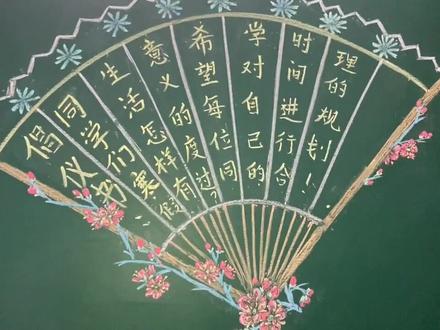 倡仪书:
同学们寒假
生活怎样有
意义的度过?
希望每位同
学对自己的
时间进行合
理的规划!